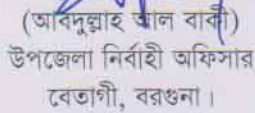 (আবদুল্লাহ আল বাকী)
উপজেলা নির্বাহী অফিসার
বেতাগী, বরগুনা।